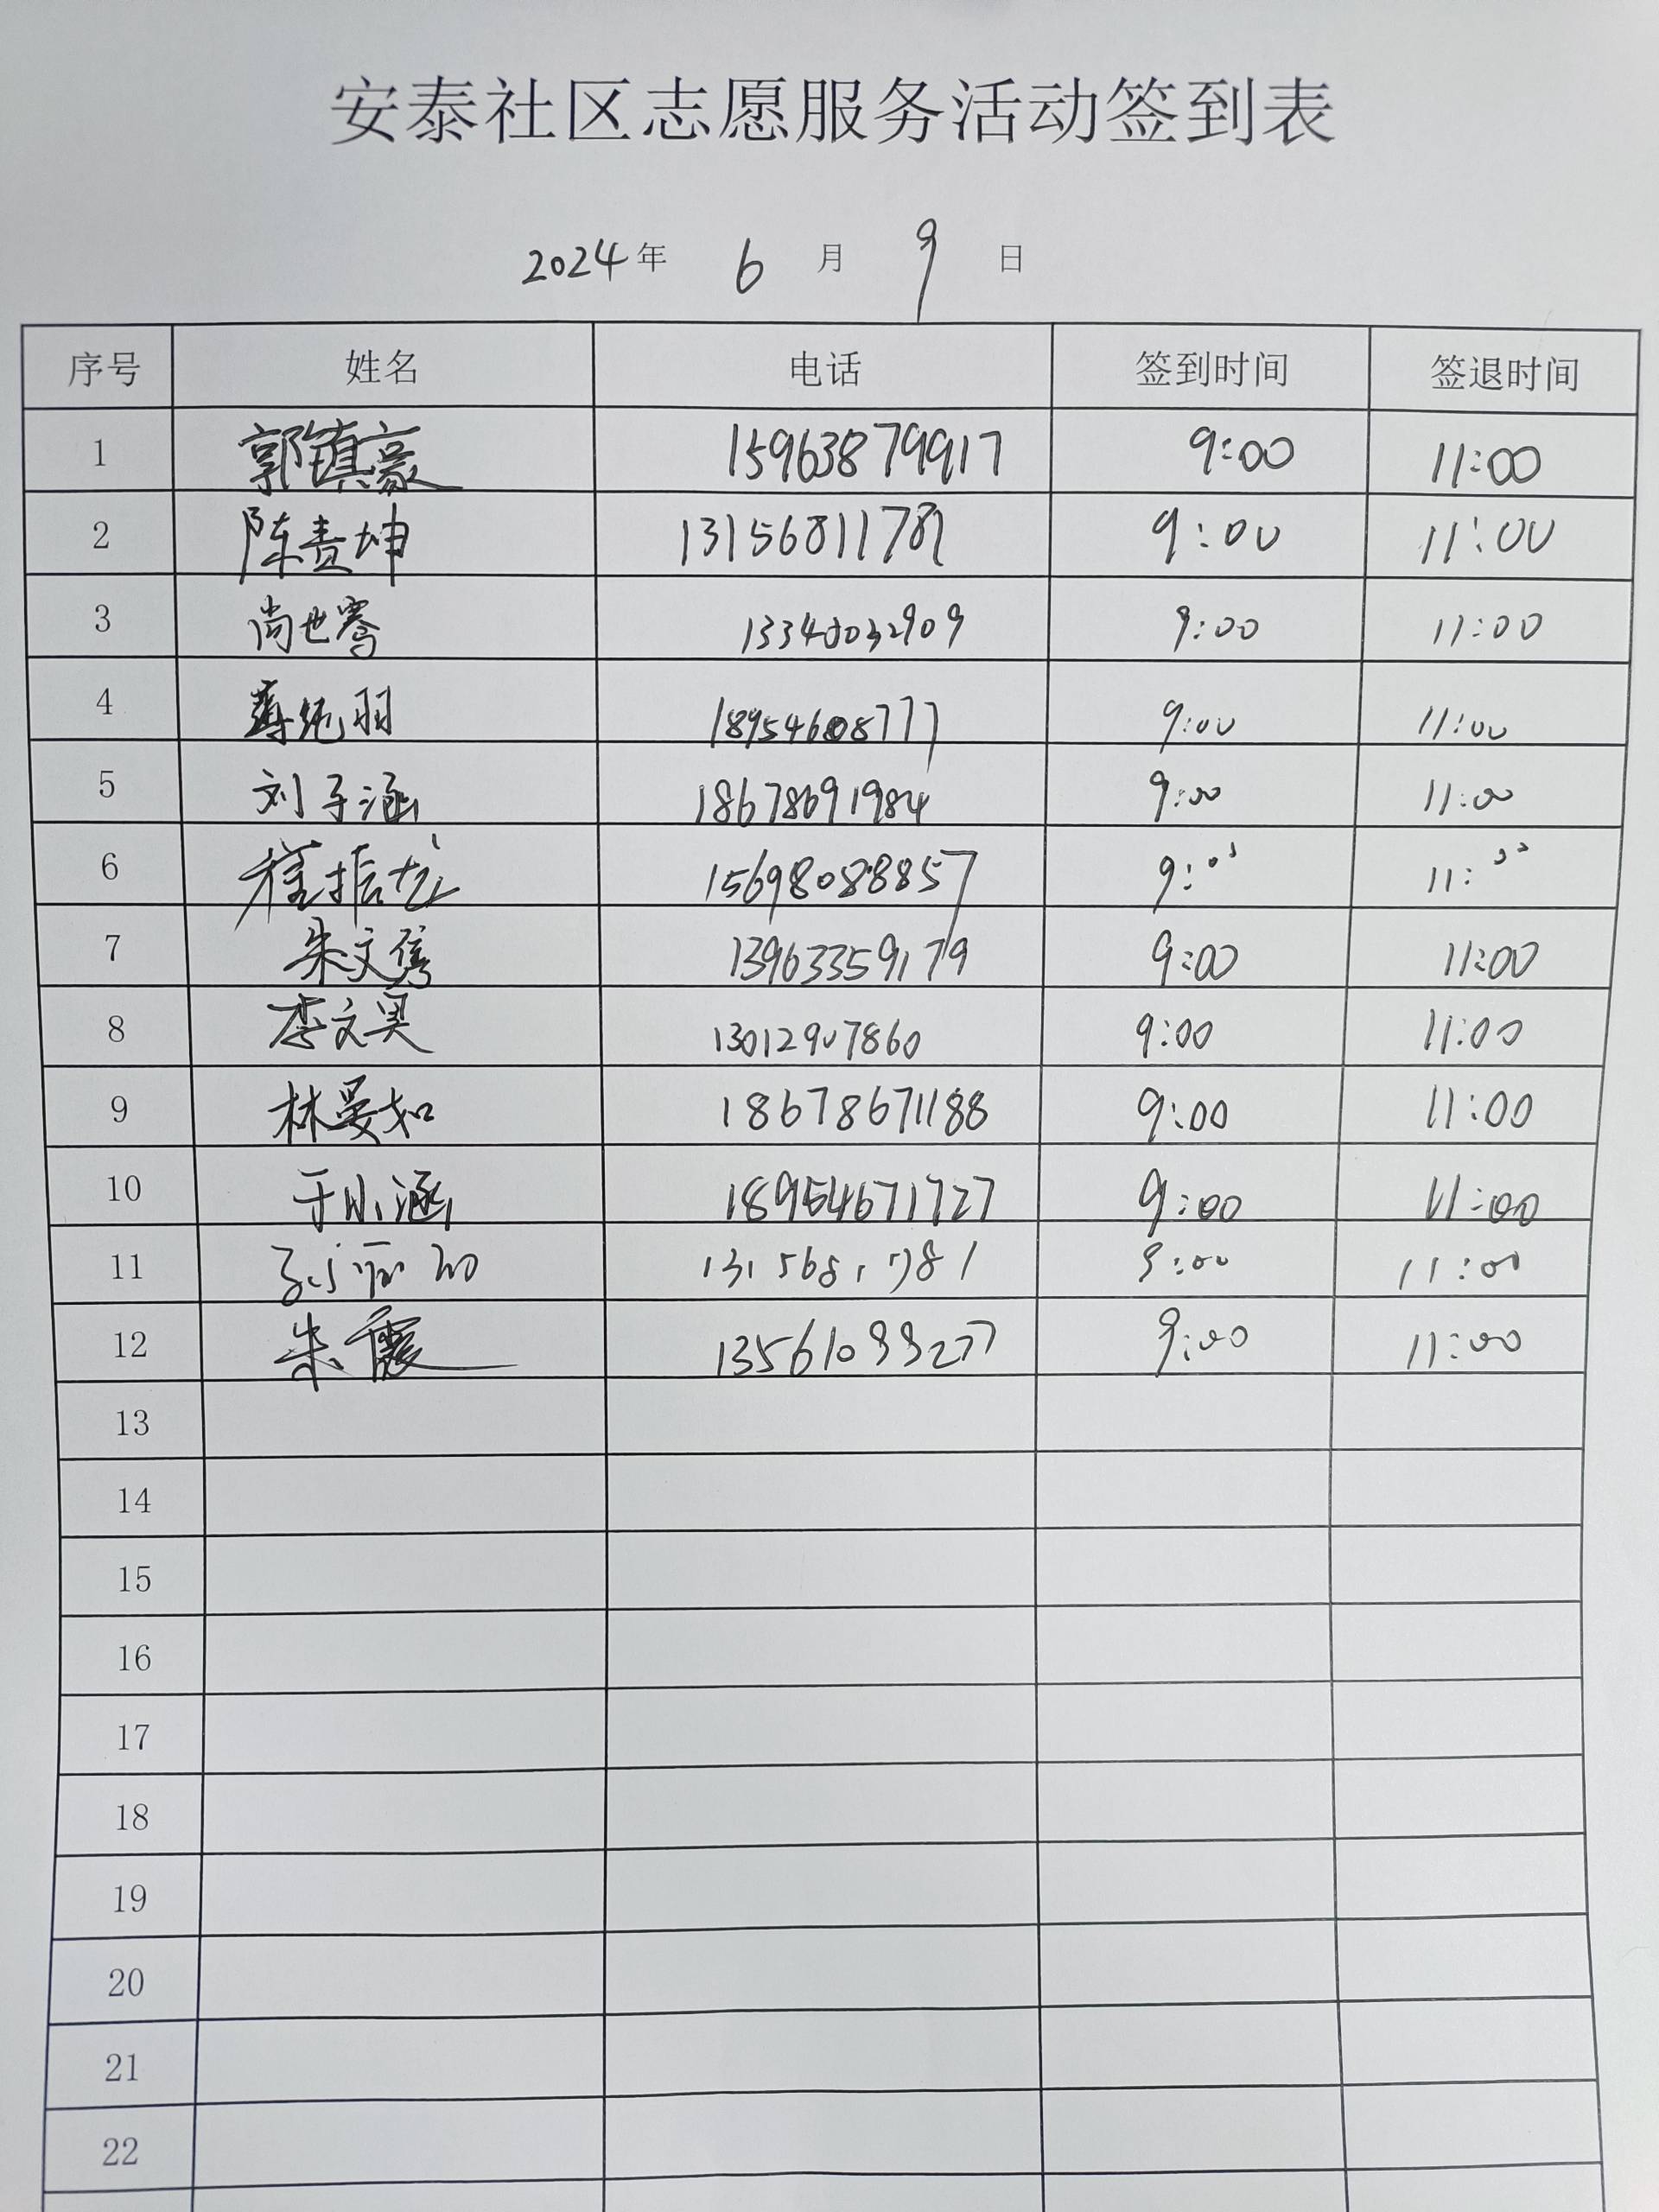 安泰社区志愿服务活动签到表
2024年 6 月 9 日
序号 姓名 电话 签到时间 签退时间
1 郭镇豪 15963879917 9:00 11:00
2 陈贵坤 13156811781 9:00 11:00
3 尚世骞 9:00 11:00
4 羽 18954608777 9:00 11:00
5 刘子涵 18678691984 9:00 11:00
6 程振龙 15698088857 9:00 11:00
7 朱文隽 13963359179 9:00 11:00
8 李文昊 13012907860 9:00 11:00
9 林晏如 18678671188 9:00 11:00
10 于小涵 18954671727 9:00 11:00
11 9:00 11:00
12 朱霞 9:00 11:00
13
14
15
16
17
18
19
20
21
22